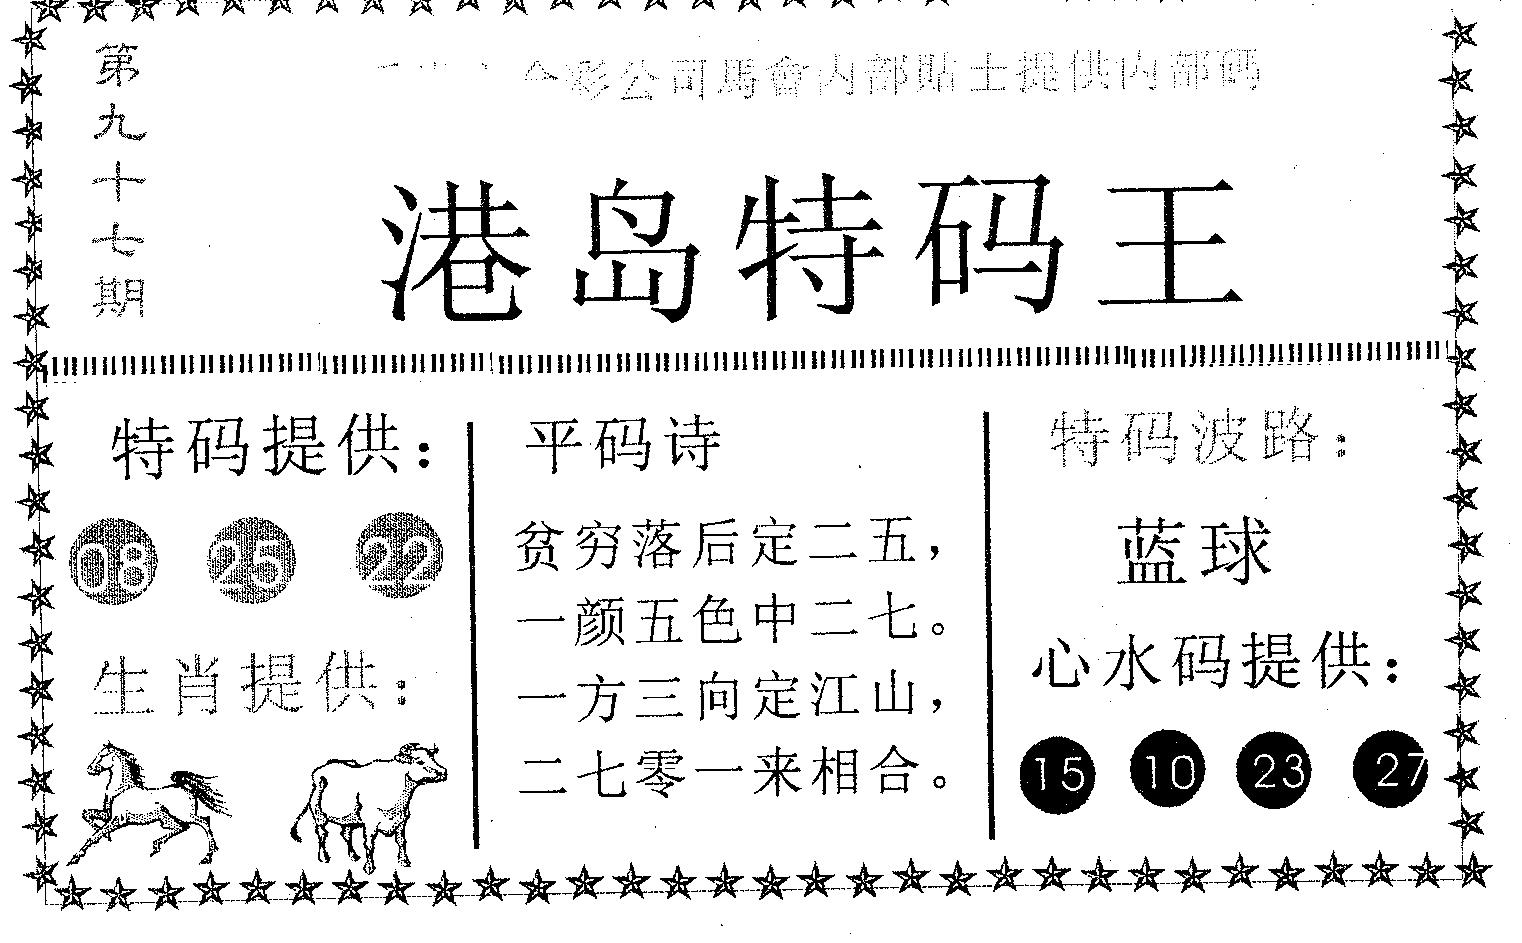 第九十七期
彩公司馬會内部貼士提供内部碼
港岛特码王
特码提供：
08 25 22
生肖提供：
平码诗
贫穷落后定二五，
一颜五色中二七。
一方三向定江山，
二七零一来相合。
特码波路：
蓝球
心水码提供：
15 10 23 27